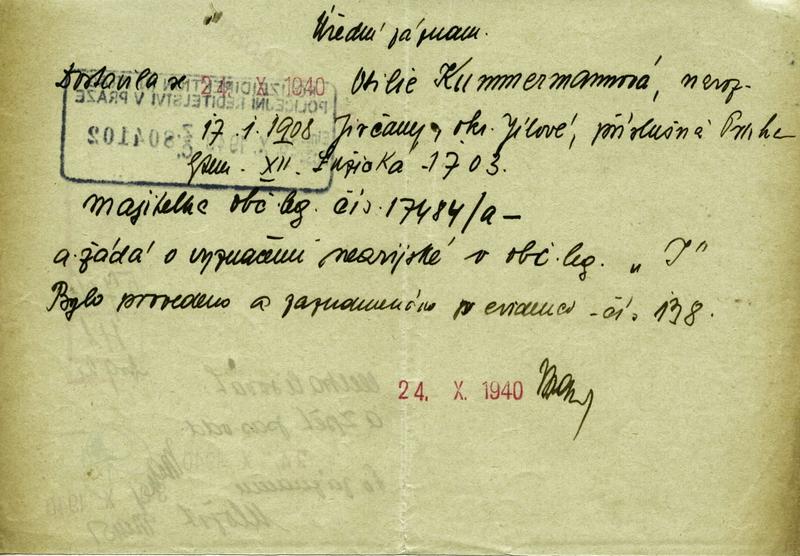 Úřední záznam.
Dostavila se 24. X. 1940 Otilie Kummermannová, naroz.
17. 1. 1908 Jirčany, okr. Jílové, příslušná Praha
bytem. XII. Lužická 1703.
majitelka obč. leg. čís. 17484/a –
a žádá o vyznačení nearijské v obč. leg. „J"
Bylo provedeno a zaznamenáno v evidenci čís. 138.
24. X. 1940
POLICEJNÍ ŘEDITELSTVÍ V PRAZE
804102